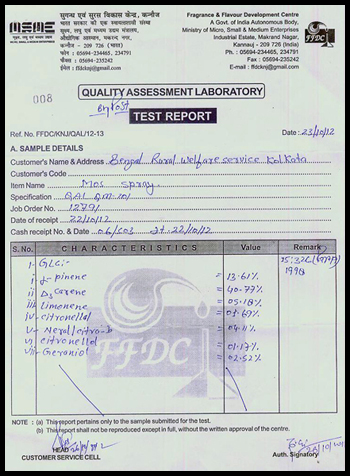 सुगन्ध एवं सुरस विकास केन्द्र, कन्नौज
भारत सरकार की एक स्वायत्त संस्था
सूक्ष्म, लघु एवं मध्यम उद्यम मंत्रालय,
औद्योगिक आस्थान, मकरन्द नगर,
कन्नौज - 209 726 (भारत)
फोन : 05694-234465, 234791
फैक्स : 05694-235242
ईमेल : ffdcknj@gmail.com
MSME
Fragrance & Flavour Development Centre
A Govt. of India Autonomous Body,
Ministry of Micro, Small & Medium Enterprises
Industrial Estate, Makrand Nagar,
Kannauj - 209 726 (India)
Phone : 05694-234465, 234791
Fax : 05694-235242
E-mail : ffdcknj@gmail.com
FFDC
008
QUALITY ASSESSMENT LABORATORY
By Post
TEST REPORT
Ref. No. FFDC/KNJ/QAL/12-13
Date: 23/10/12
A. SAMPLE DETAILS
Customer's Name & Address Bengal Rural Welfare service Kolkata
Customer's Code
Item Name Mos spray
Specification QAL QM-101
Job Order No. 12791
Date of receipt 22/10/12
Cash receipt No. & Date 06/503 dt. 22/10/12
S. No. CHARACTERISTICS Value Remark
1- GLC:-
i- α-pinene = 13.61%
ii Δ3 carene = 40.77%
iii Limonene = 05.18%
iv- citronellal = 01.69%
v- = 04.11%
vi citronellol = 01.17%
vii- Geraniol = 02.52%
1998
FFDC
NOTE : (a) This report pertains only to the sample submitted for the test.
(b) This report shall not be reproduced except in full, without the written approval of the centre.
HEAD
CUSTOMER SERVICE CELL
Auth. Signatory